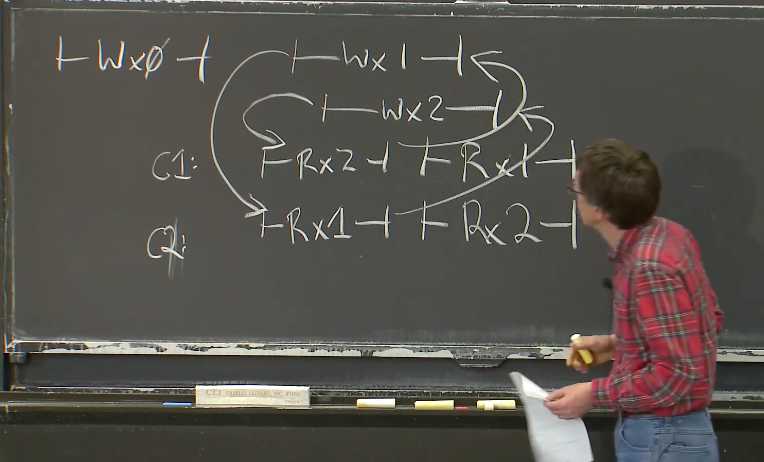 ⊢Wxø⊣ ⊢Wx1⊣
⊢Wx2⊣
C1: ⊢Rx2⊣ ⊢Rx1⊣
C2: ⊢Rx1⊣ ⊢Rx2⊣